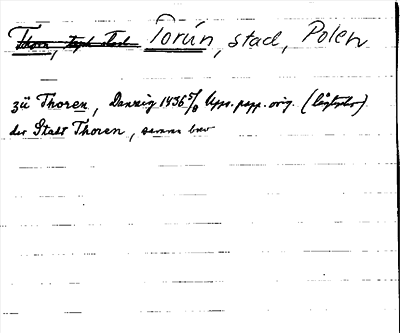 ~~Thorn, tysk stad~~ Toruń, stad, Polen
zü Thoren, Danzig 1436 5/8 Upps. papp. orig. (lågtyska)
der Stadt Thoren, samma brev